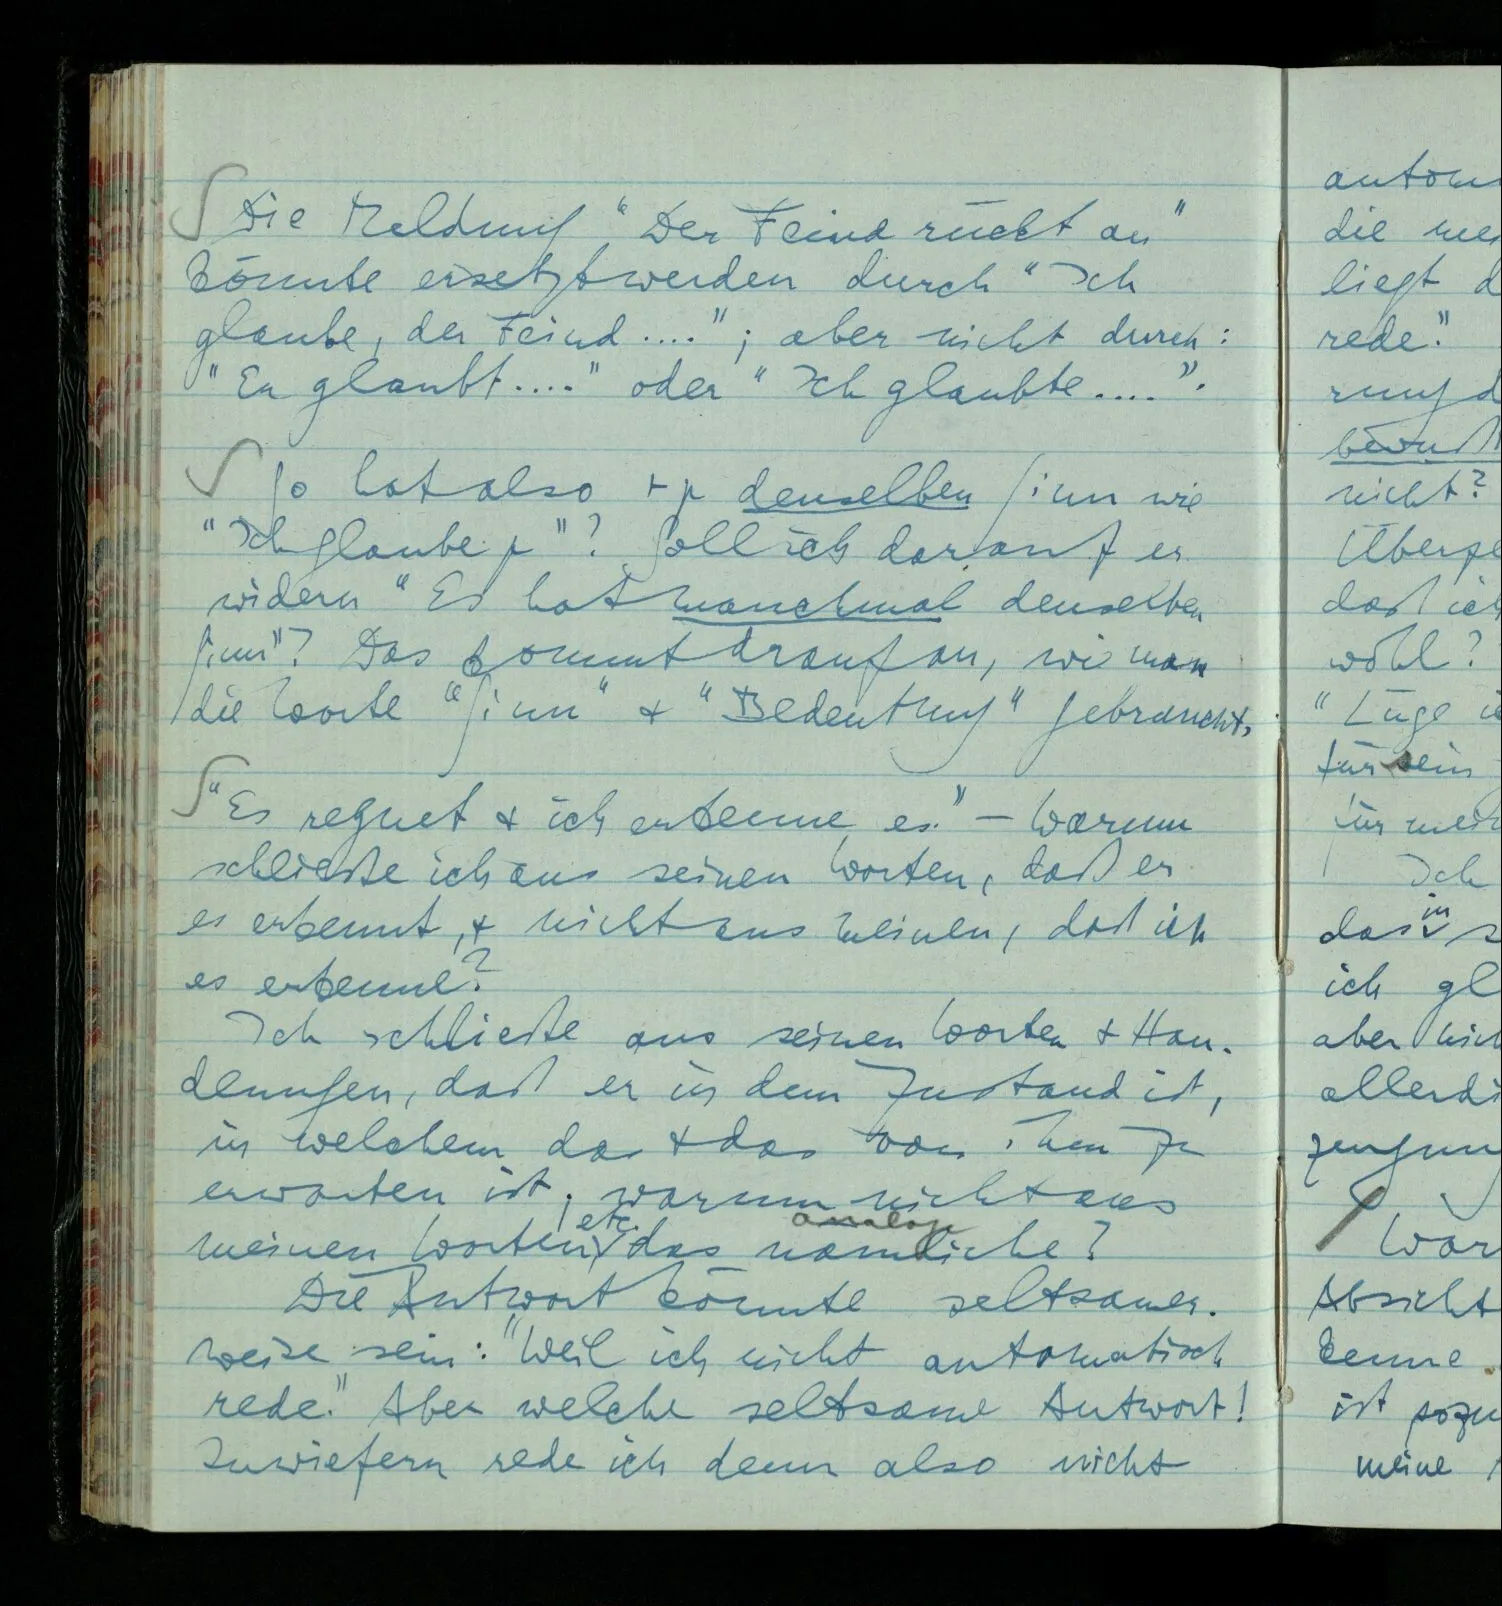 ∫ Die Meldung "Der Feind rückt an"
könnte ersetzt werden durch "Ich
glaube, der Feind ...."; aber nicht durch:
"Er glaubt ...." oder "Ich glaubte ....".
∫ So hat also ⊢p denselben Sinn wie
"Ich glaube p"? Soll ich darauf er
widern "Es hat manchmal denselben
Sinn"? Das kommt drauf an, wie man
die Worte "Sinn" & "Bedeutung" gebraucht.
∫ "Es regnet & ich erkenne es." – Warum
schließe ich aus seinen Worten, daß er
es erkennt, & nicht aus meinen, daß ich
es erkenne?
Ich schließe aus seinen Worten & Han-
dlungen, daß er in dem Zustand ist,
in welchem das & das von ihm zu
erwarten ist; warum nicht aus
etc. analog
meinen Worten das nämliche?
Die Antwort könnte seltsamer-
weise sein: "Weil ich nicht automatisch
rede." Aber welche seltsame Antwort!
Inwiefern rede ich denn also nicht
die
liegt d
rede."
nicht?
daß ich
wohl?
"Lüge
für sein
für mein
Ich
in
das s
ich gl
aber nich
allerdi
zeugung
War
Absicht
kenne
ist sozu
meine